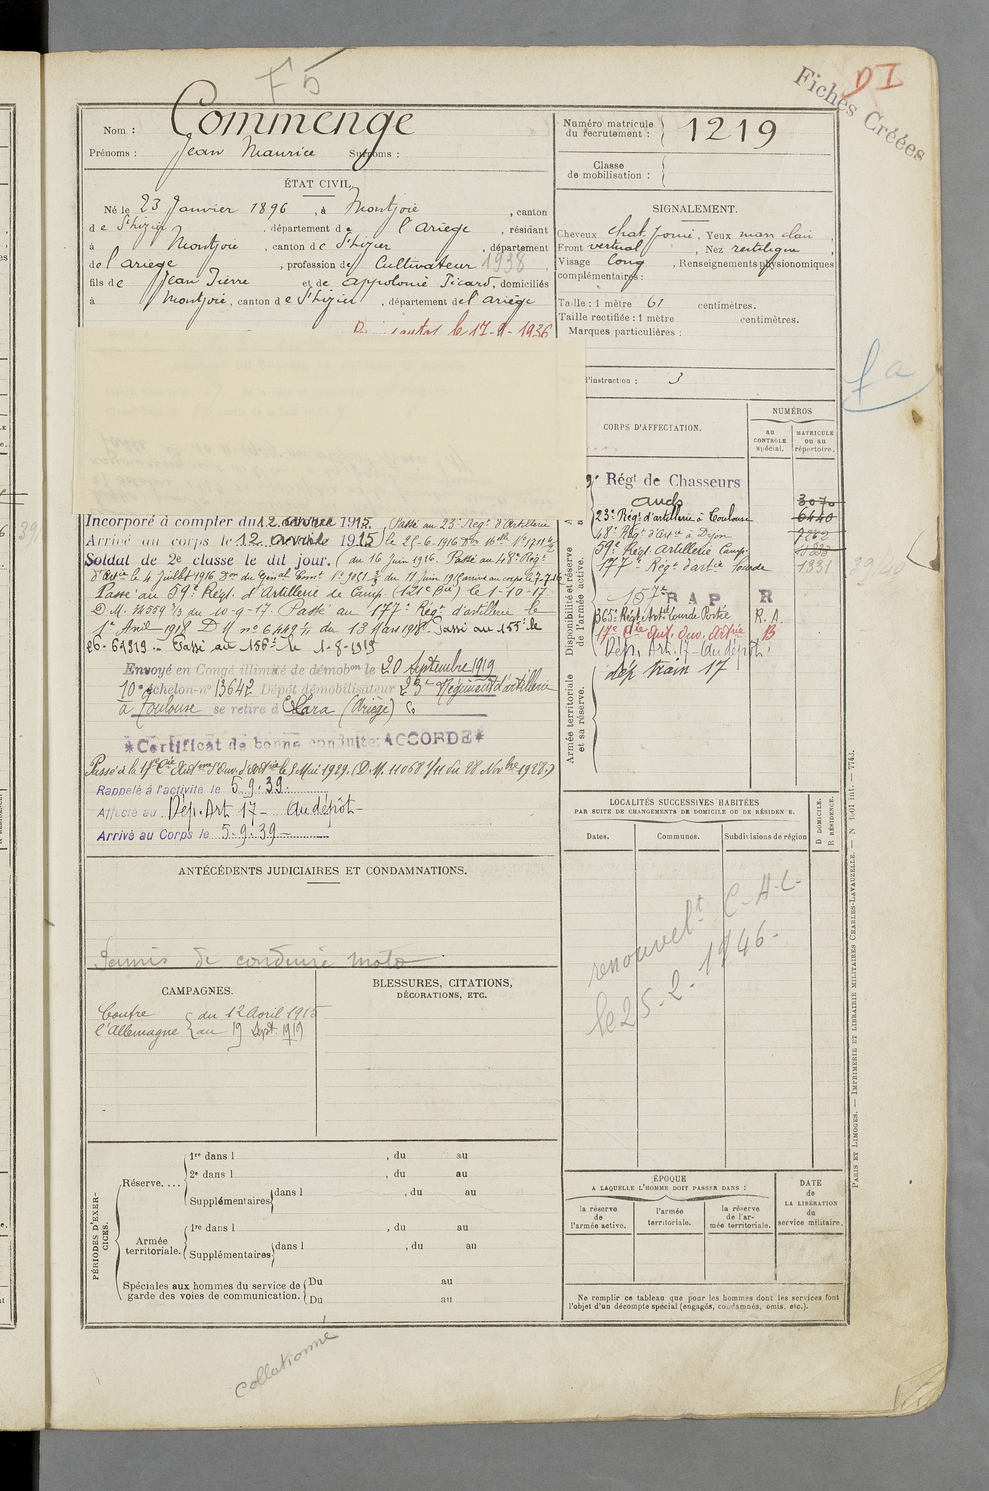 F5
DI
Fiches Créées
Nom : Commenge
Prénoms : Jean Maurice Surnoms :
Numéro matricule du recrutement : 1219
Classe de mobilisation :
ÉTAT CIVIL.
Né le 23 Janvier 1896, à Montjoie, canton
de St Lizier, département de l'Ariège, résidant
à Montjoie, canton de St Lizier, département
de l'Ariège, profession de Cultivateur 1938,
fils de Jean Pierre et de Appolonie Picard, domiciliés
à Montjoie, canton de St Lizier, département de l'Ariège
le 17-9-1936
SIGNALEMENT.
Cheveux chat. foncé, Yeux marr clair
Front vertical, Nez rectiligne
Visage long, Renseignements physionomiques
complémentaires :
Taille : 1 mètre 61 centimètres.
Taille rectifiée : 1 mètre centimètres.
Marques particulières :
d'instruction : 3
fa
CORPS D'AFFECTATION.
NUMÉROS
au CONTRÔLE spécial.
MATRICULE ou au répertoire.
Régt de Chasseurs
Auch 3070
23e Régt d'artillerie à Toulouse 6440
48e Régt d'Artie à Dijon 7262
59e Régt Artillerie Camp.
177e Régt d'artie Lourde 1331
39/40
157e R A P R
365e Régt Artrie Lourde Portée R. A.
17e Cie Aux. Ouv. Artrie B
Dép. Art. 17 - Au dépôt
dép train 17
Disponibilité et réserve de l'armée active.
Armée territoriale et sa réserve.
Incorporé à compter du 12 avril 1915. Passé au 23e Régt d'Artillerie
Arrivé au corps le 12 avril 1915 le 25-6-1916
Soldat de 2e classe le dit jour. du 16 Juin 1916. Passé au 48e Régt
d'Artie le 4 Juillet 1916 du 11 Juin 1916 arrivé au corps le 7-7-16
Passé au 59e Régt d'Artillerie de Camp. (121e Bie) le 1-10-17.
D.M. 74559 2/3 du 10-9-17. Passé au 177e Régt d'artillerie le
1er Avril 1918 D M no 6449 du 13 Mars 1918. Passé au 155e le
26-6-1919. Passé au 156e le 1-8-1919
Envoyé en Congé illimité de démobon le 20 Septembre 1919
10e échelon-no 13647 Dépôt démobilisateur 23e Régiment d'artillerie
à Toulouse se retire à Clara (Ariège)
*Certificat de bonne conduite: ACCORDÉ*
Passé à la 17e Cie Autme d'Ouv. d'Artrie le 8 Mai 1929. (D.M. 11068 1/11 du 28 Novbre 1928.)
Rappelé à l'activité le 5.9.39.
Affecté au Dép. Art 17 - Au dépôt -
Arrivé au Corps le 5.9.39 -
LOCALITÉS SUCCESSIVES HABITÉES
PAR SUITE DE CHANGEMENTS DE DOMICILE OU DE RÉSIDENCE.
Dates.
Communes.
Subdivisions de région
D DOMICILE.
R RÉSIDENCE.
renouvelt C-A-L-
le 25-2-1946-
ANTÉCÉDENTS JUDICIAIRES ET CONDAMNATIONS.
Permis de conduire moto
CAMPAGNES.
Contre l'Allemagne { du 12 Avril 1915
au 19 Sept. 1919
BLESSURES, CITATIONS,
DÉCORATIONS, ETC.
PÉRIODES D'EXERCICES.
Réserve....
1re dans l , du au
2e dans l , du au
Supplémentaires dans l , du au
Armée territoriale.
1re dans l , du au
Supplémentaires dans l , du au
Spéciales aux hommes du service de garde des voies de communication.
Du au
Du au
ÉPOQUE
A LAQUELLE L'HOMME DOIT PASSER DANS :
la réserve de l'armée active.
l'armée territoriale.
la réserve de l'armée territoriale.
DATE de LA LIBÉRATION du service militaire.
Ne remplir ce tableau que pour les hommes dont les services font
l'objet d'un décompte spécial (engagés, condamnés, omis, etc.).
PARIS ET LIMOGES. — IMPRIMERIE ET LIBRAIRIE MILITAIRES CHARLES-LAVAUZELLE. — N 1501 int. — 7743.
collationné